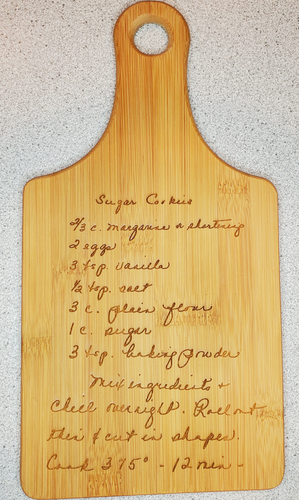 Sugar Cookies
2/3 c. margarine or shortening
2 eggs
3 tsp. vanilla
1/2 tsp. salt
3 c. plain flour
1 c. sugar
3 tsp. baking powder
Mix ingredients +
chill overnight. Roll out
thin & cut in shapes.
Cook 375° - 12 min -